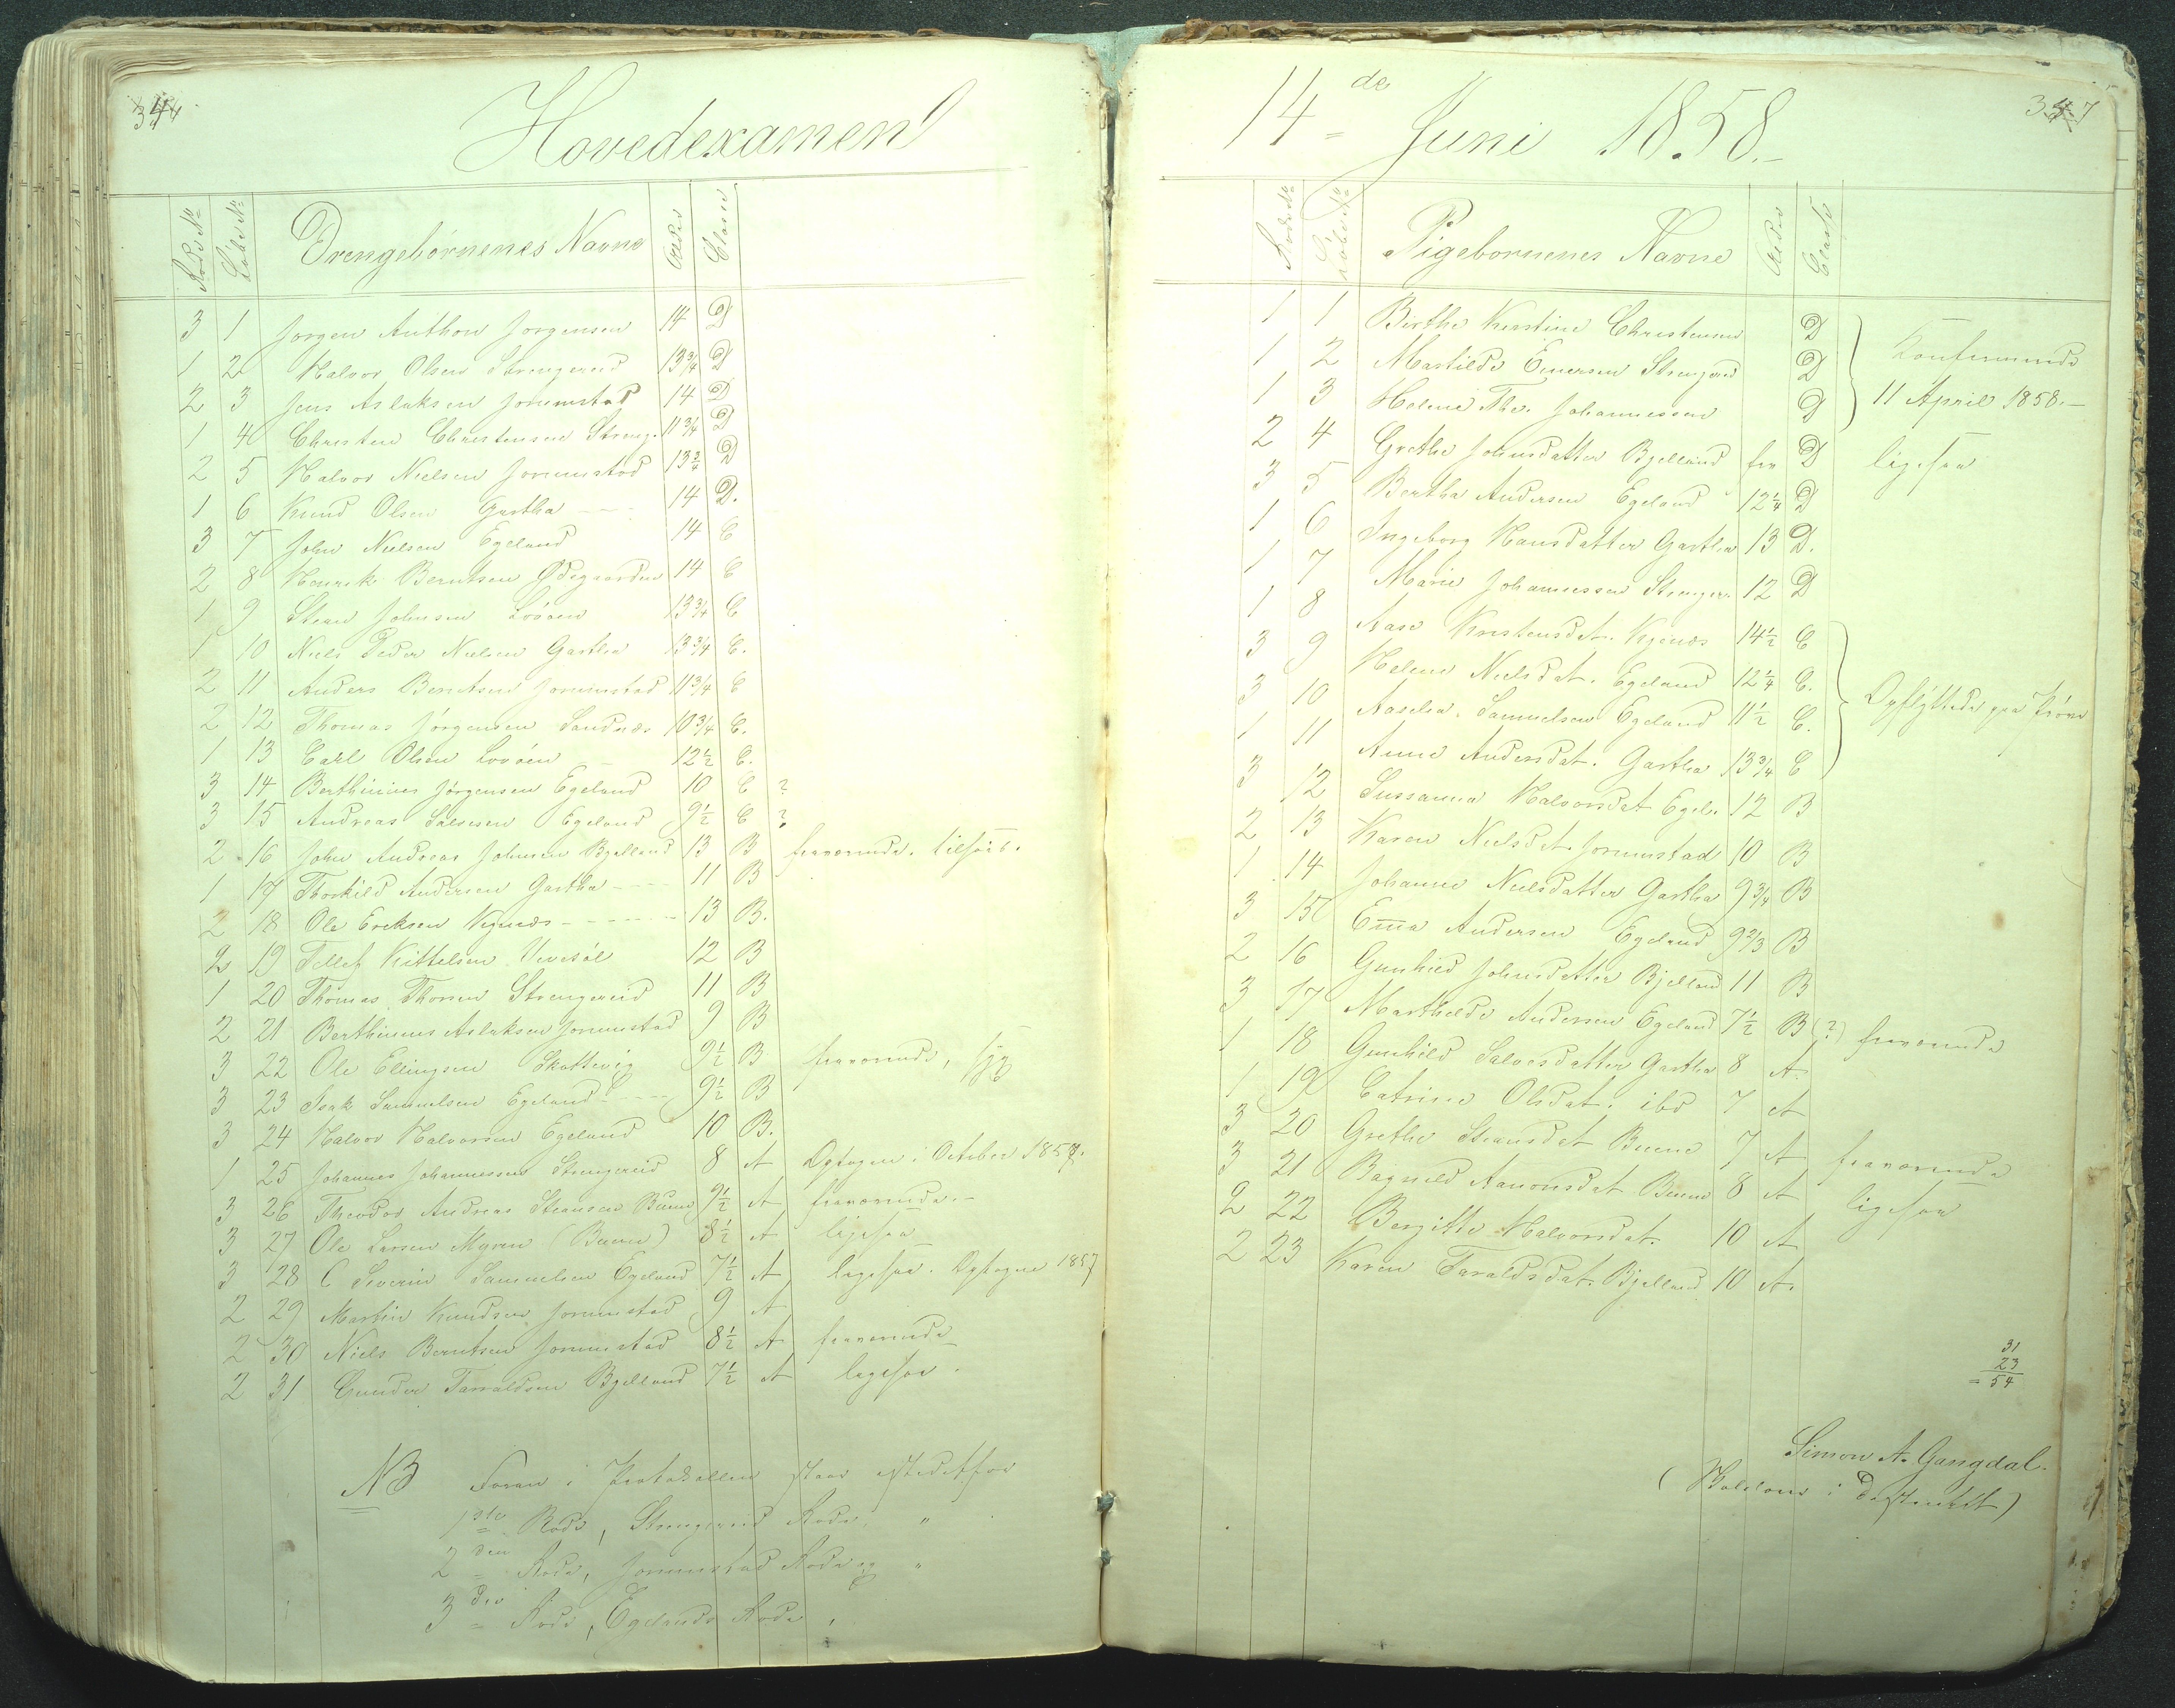 Hovedexamen
Rode No Løbe No Drengebørnenes Navne Alder Classe
3 1 Jørgen Anthon Jørgensen 14 D
1 2 Halvor Olsen Strengereid 13 3/4 D
2 3 Jens Aslaksen Jommestad 14 D
1 4 Christen Christensen Streng. 11 3/4 D
2 5 Halvor Nielsen Jommestad 13 3/4 D
1 6 Knud Olsen Gartha 14 D.
3 7 John Nielsen Egeland 14 C
2 8 Henrik Berntsen Ødegaarden 14 C
1 9 Stean Johnsen 13 3/4 C
1 10 Niels Peder Nielsen Gartha 13 3/4 C.
2 11 Anders Berntsen Jommestad 11 3/4 C
2 12 Thomas Jørgensen Sandnæs 10 3/4 C.
1 13 Carl Olsen 12 1/2 C.
3 14 Berthinius Jørgensen Egeland 10 C ?
3 15 Andreas Salvesen Egeland 9 1/2 C ?
2 16 John Andreas Johnsen Bjelland 13 B fraværende. tilsøes.
1 17 Thorkild Andersen Gartha 11 B
2 18 Ole Ericksen Kjenæs 13 B.
2 19 Tellef Kittelsen 12 B
1 20 Thomas Thorsen Strengereid 11 B
2 21 Berthinius Aslaksen Jommestad 9 B
3 22 Ole Ellingsen Skottevig 9 1/2 B fraværende, syg
3 23 Isak Samuelsen Egeland 9 1/2 B
3 24 Halvor Halvorsen Egeland 10 B.
1 25 Johannes Johannessen Strengereid 8 A Optagen i October 1857.
3 26 Theodor Andreas Steansen Buene 9 1/2 A fraværende.
3 27 Ole Larsen Myren (Buene) 8 1/2 A ligesaa
3 28 C Severin Samuelsen Egeland 7 1/2 A ligesaa. Optagne 1857
2 29 Martin Knudsen Jommestad 9 A
2 30 Niels Berntsen Jommestad 8 1/2 A fraværende
2 31 Gunder Tarraldsen Bjelland 7 1/2 A ligesaa.
NB Foran i Protokollen staar istedetfor
1ste Rode, Strengereid Rode "
2den Rode, Jommestad Rode og "
3die Rode, Egelands Rode "
14de Juni 1858.-
347
Rode No Løbe No Pigebørnenes Navne Alder Classe
1 1 Birthe Kirstine Christensen D
1 2 Martilde Einersen Strengereid D Konfirmerede
1 3 Helene The. Johannessen D 11 April 1858.-
2 4 Grethe Johnsdatter Bjelland fra D ligesaa
3 5 Bertha Andersen Egeland 12 1/4 D
1 6 Ingeborg Hansdatter Gartha 13 D.
1 7 Marie Johannessen Strenger. 12 D
1 8 Aase Kristensdat. Kjenæs 14 1/2 C
3 9 Helene Nielsdat. Egeland 12 1/4 C.
3 10 Aaselia Samuelsen Egeland 11 1/2 C. Opflyttede paa Prøve
1 11 Anne Andersdat. Gartha 13 3/4 C
3 12 Sussanna Halvorsdat Egel. 12 B
2 13 Karen Nielsdat. Jommestad 10 B
1 14 Johanne Nielsdatter Gartha 9 3/4 B
3 15 Emma Andersen Egeland 9 2/3 B
2 16 Gunhild Johnsdatter Bjelland 11 B
3 17 Marthilde Andersen Egeland 7 1/2 B (?) fraværende
1 18 Gunhild Salvesdatter Gartha 8 A.
1 19 Catrine Olsdat. ibd 7 A
3 20 Grethe Steansdat Buene 7 A fraværende
3 21 Ragnild Aanonsdat Buene 8 A ligesaa
2 22 Bergitte Halvorsdat. 10 A
2 23 Karen Taraldsdat. Bjelland 10 A.
31
23
= 54
Simon A. Gangdal.